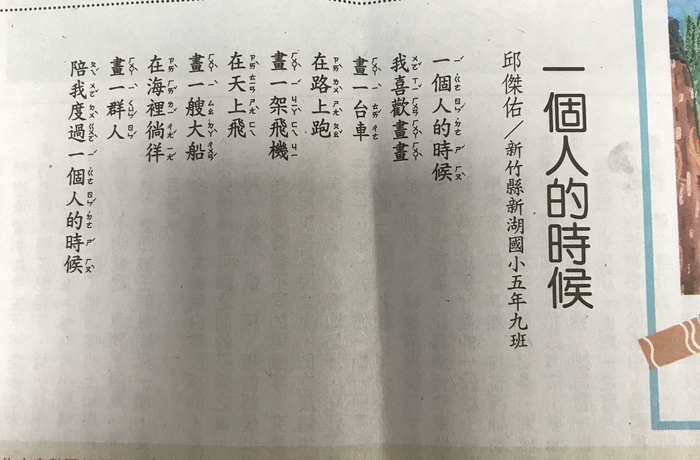 一個人的時候
邱傑佑／新竹縣新湖國小五年九班
一個人的時候
我喜歡畫畫
畫一台車
在路上跑
畫一架飛機
在天上飛
畫一艘大船
在海裡徜徉
畫一群人
陪我度過一個人的時候